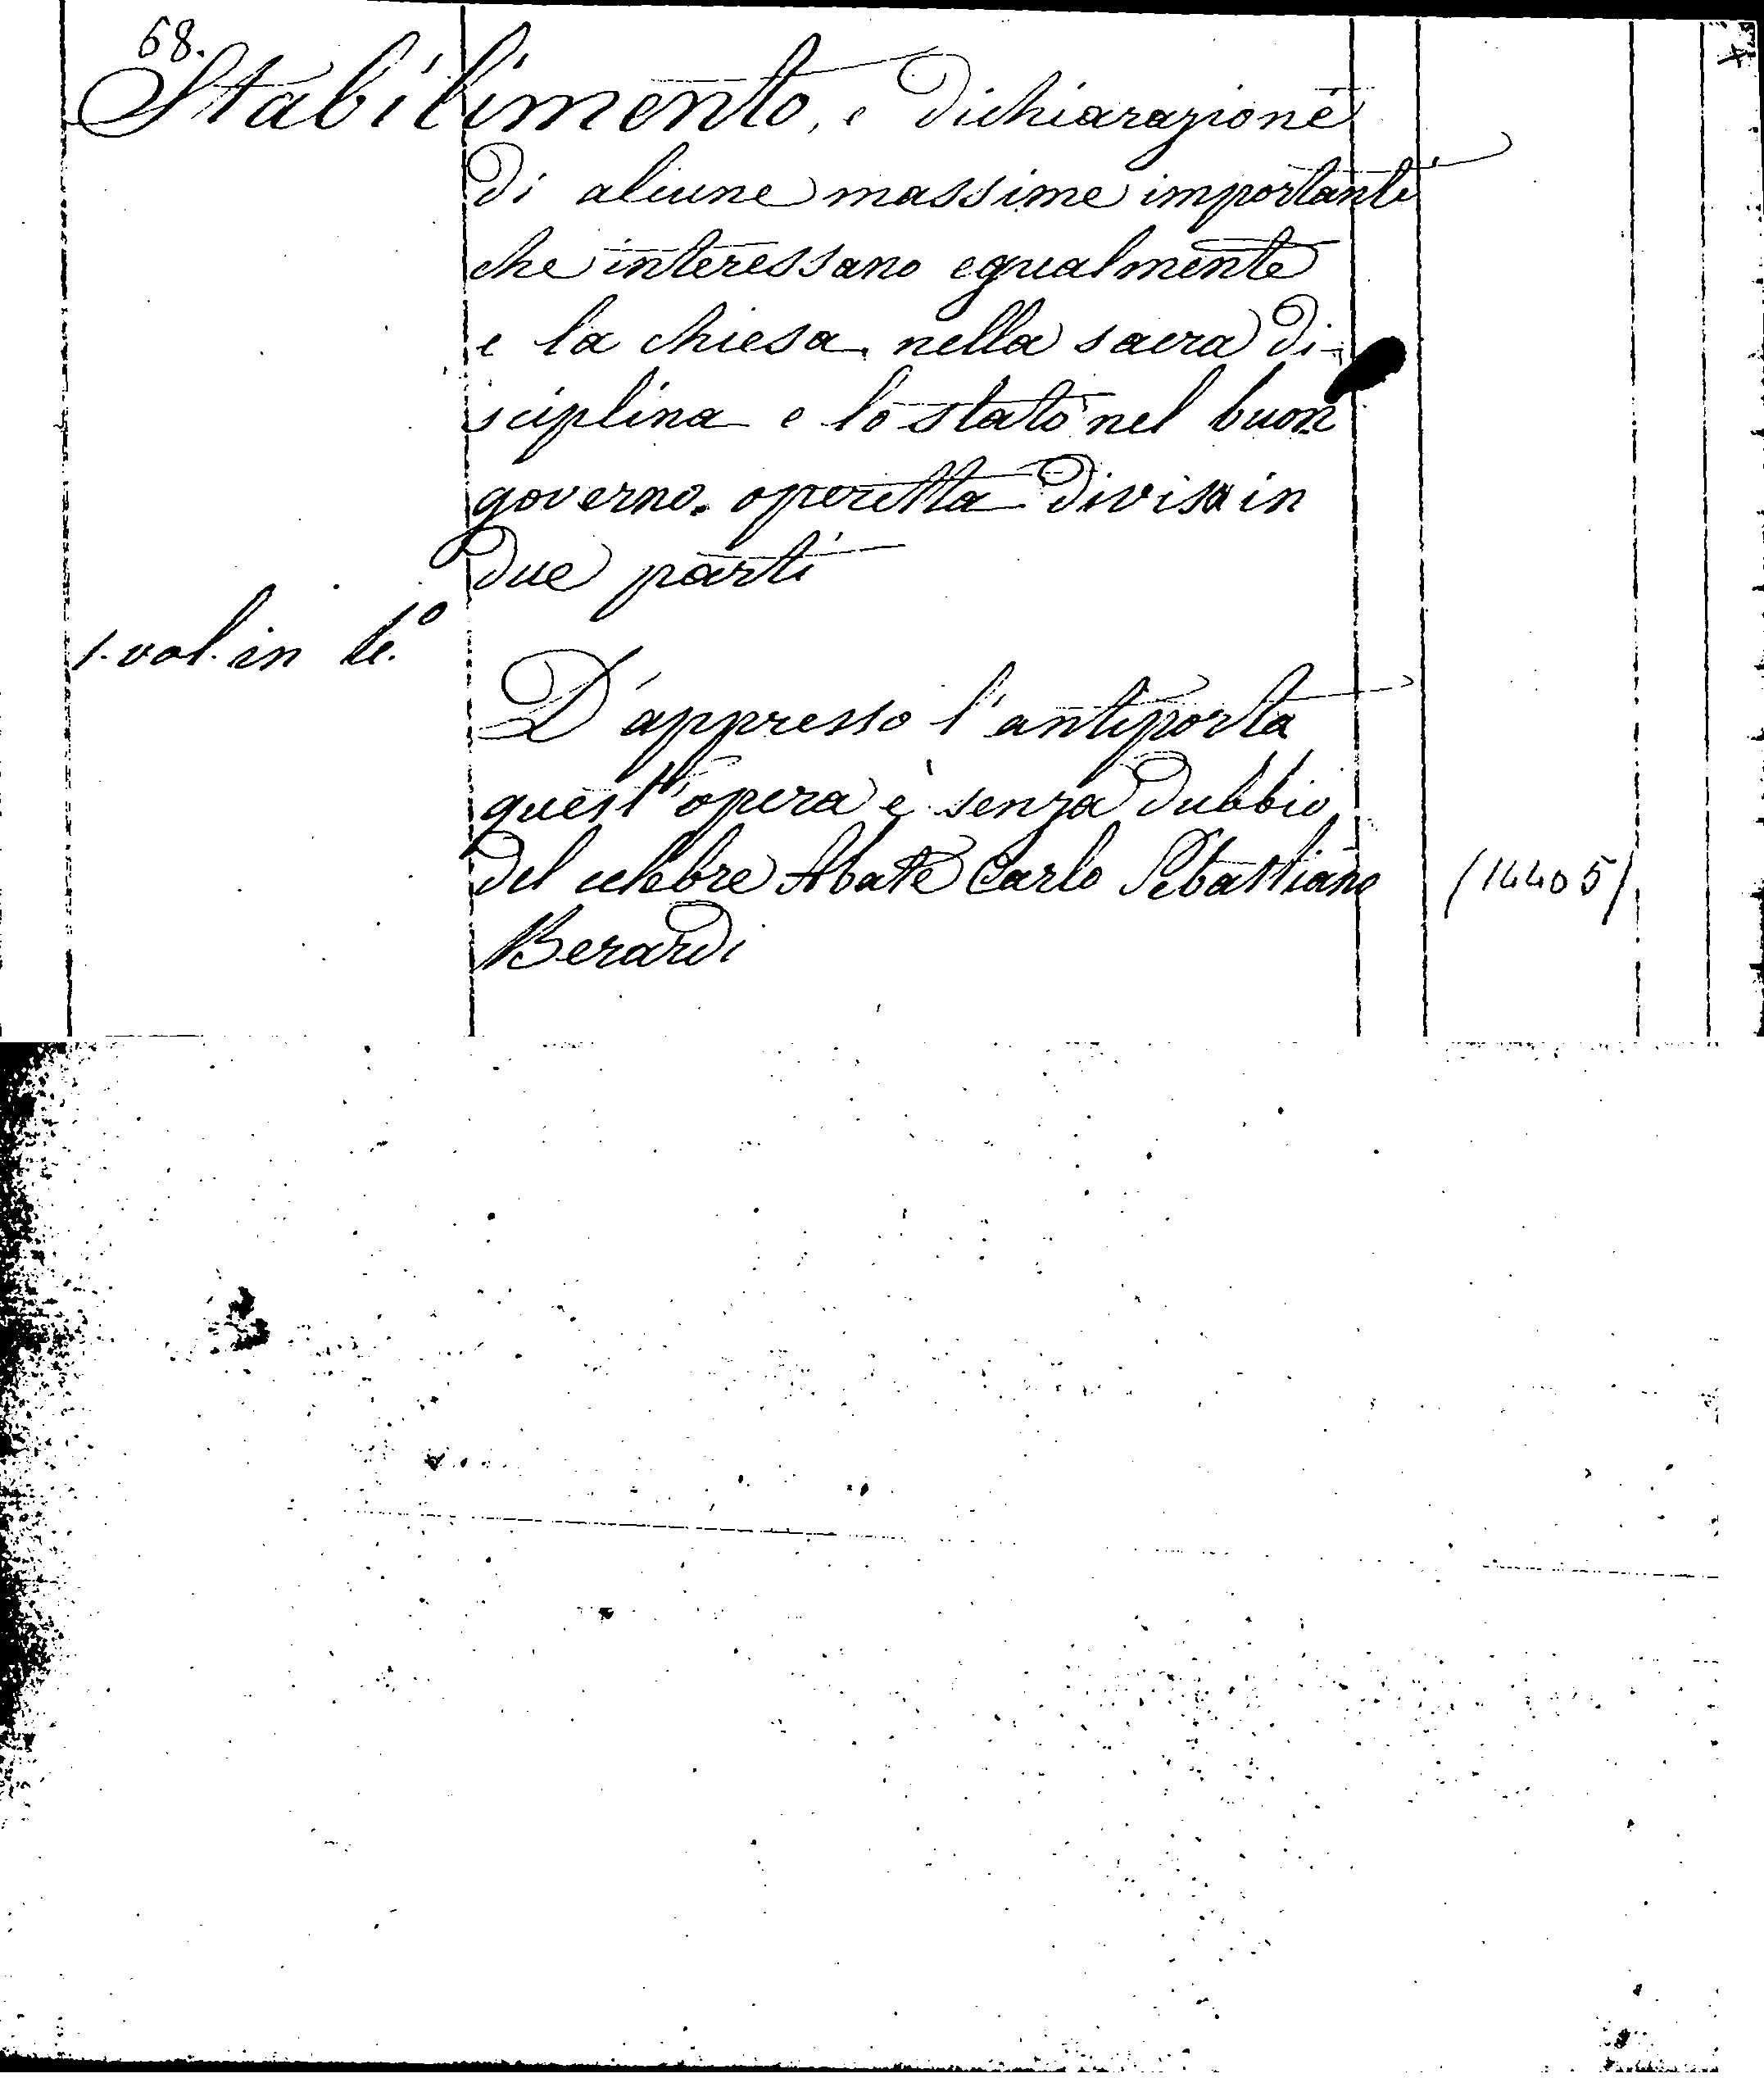 68.
Stabilimento, e dichiarazione
di alcune massime importanti
che interessano egualmente
e la chiesa, nella sacra di-
sciplina e lo stato nel buon
governo. operetta divisa in
due parti
1. vol. in 4.º
D'appresso l'antiporta
quest'opera è senza dubbio
del celebre Abate Carlo Sebastiano (14405)
Berardi